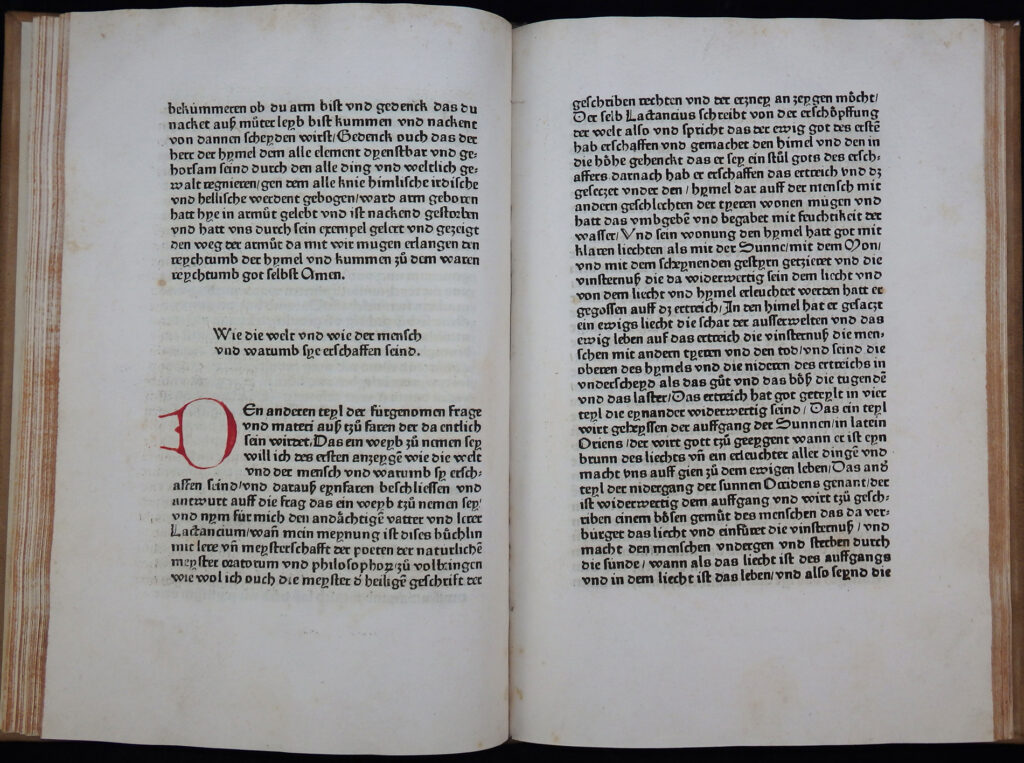 bekümmeren ob du arm bist vnd gedenck das du
nacket auß můter leyb bist kummen vnd nackent
von dannen scheyden wirst/Gedenck ouch das der
herr der hymel dem alle element dyenstbar vnd ge⸗
horsam seind durch den alle ding vnd weltlich ge⸗
walt regnieren/gen dem alle knie himlische irdische
vnd hellische werdent gebogen/ward arm geboren
hatt hye in armůt gelebt vnd ist nackend gestorben
vnd hatt vns durch sein exempel gelert vnd gezeigt
den weg der armůt da mit wir mugen erlangen den
reychtumb der hymel vnd kummen zů dem waren
reychtumb got selbst Amen.
Wie die welt vnd wie der mensch
vnd warumb sye erschaffen seind.
DEn anderen teyl der fürgenomen frage
vnd materi auß tzů faren der da entlich
sein wirdet/Das ein weyb tzů nemen sey
will ich des ersten anzeygē wie die welt
vnd der mensch vnd warumb sy ersch⸗
affen seind/vnd darauß eynfaren beschliessen vnd
antwurt auff die frag das ein weyb tzů nemen sey/
vnd nym für mich den andächtigē vatter vnd lerer
Lactancium/wañ mein meynung ist dises büchlin
mit lere vñ meysterschafft der poeten der naturlichē
meyster oratorum vnd philosophoꝝ zů volbringen
wie wol ich ouch die meyster ď heiligē geschrift der
geschriben rechten vnd der erzney an zeygen möcht/
Der selb Lactancius schreibt von der erschöpffung
der welt also vnd spricht das der ewig got des erstē
hab erschaffen vnd gemachet den himel vnd den in
die höhe gehenckt das er sey ein stůl gots des ersch⸗
affers darnach hab er erschaffen das ertreich vnd dz
gesetzet vnder den/hymel dar auff der mensch mit
andern geschlechten der tyeren wonen mugen vnd
hatt das vmbgebē vnd begabet mit feuchtikeit der
wasser/Vnd sein wonung den hymel hatt got mit
klaren liechten als mit der Sunne/mit dem Mon/
vnd mit dem scheynenden gestyrn getzieret vnd die
vinsternuß die da widerwertig sein dem liecht vnd
von dem liecht vnd hymel erleuchtet werden hatt er
gegossen auff dz ertreich/In den himel hat er gesatzt
ein ewigs liecht die schar der ausserwelten vnd das
ewig leben auf das ertreich die vinsternuß die men⸗
schen mit andern tyeren vnd den tod/vnd seind die
oberen des hymels vnd die nideren des ertreichs in
vnderscheyd als das gůt vnd das böß die tugendē
vnd das laster/Das ertreich hat got geteylt in vier
teyl die eynander widerwertig seind/Das ein teyl
wirt geheyssen der auffgang der Sunnen/in latein
Oriens/der wirt gott tzů geeygent wann er ist eyn
brunn des liechts vñ ein erleuchter aller dingē vnd
macht vns auff gien zů dem ewigen leben/Das and̄
teyl der nidergang der sunnen Occidens genant/der
ist widerwertig dem auffgang vnd wirt tzů gesch⸗
riben einem bösen gemůt des menschen das da ver⸗
bürget das liecht vnd einfüret die vinsternuß/vnd
macht den menschen vndergen vnd sterben durch
die sünde/wann als das liecht ist des auffgangs
vnd in dem liecht ist das leben/vnd also seynd die